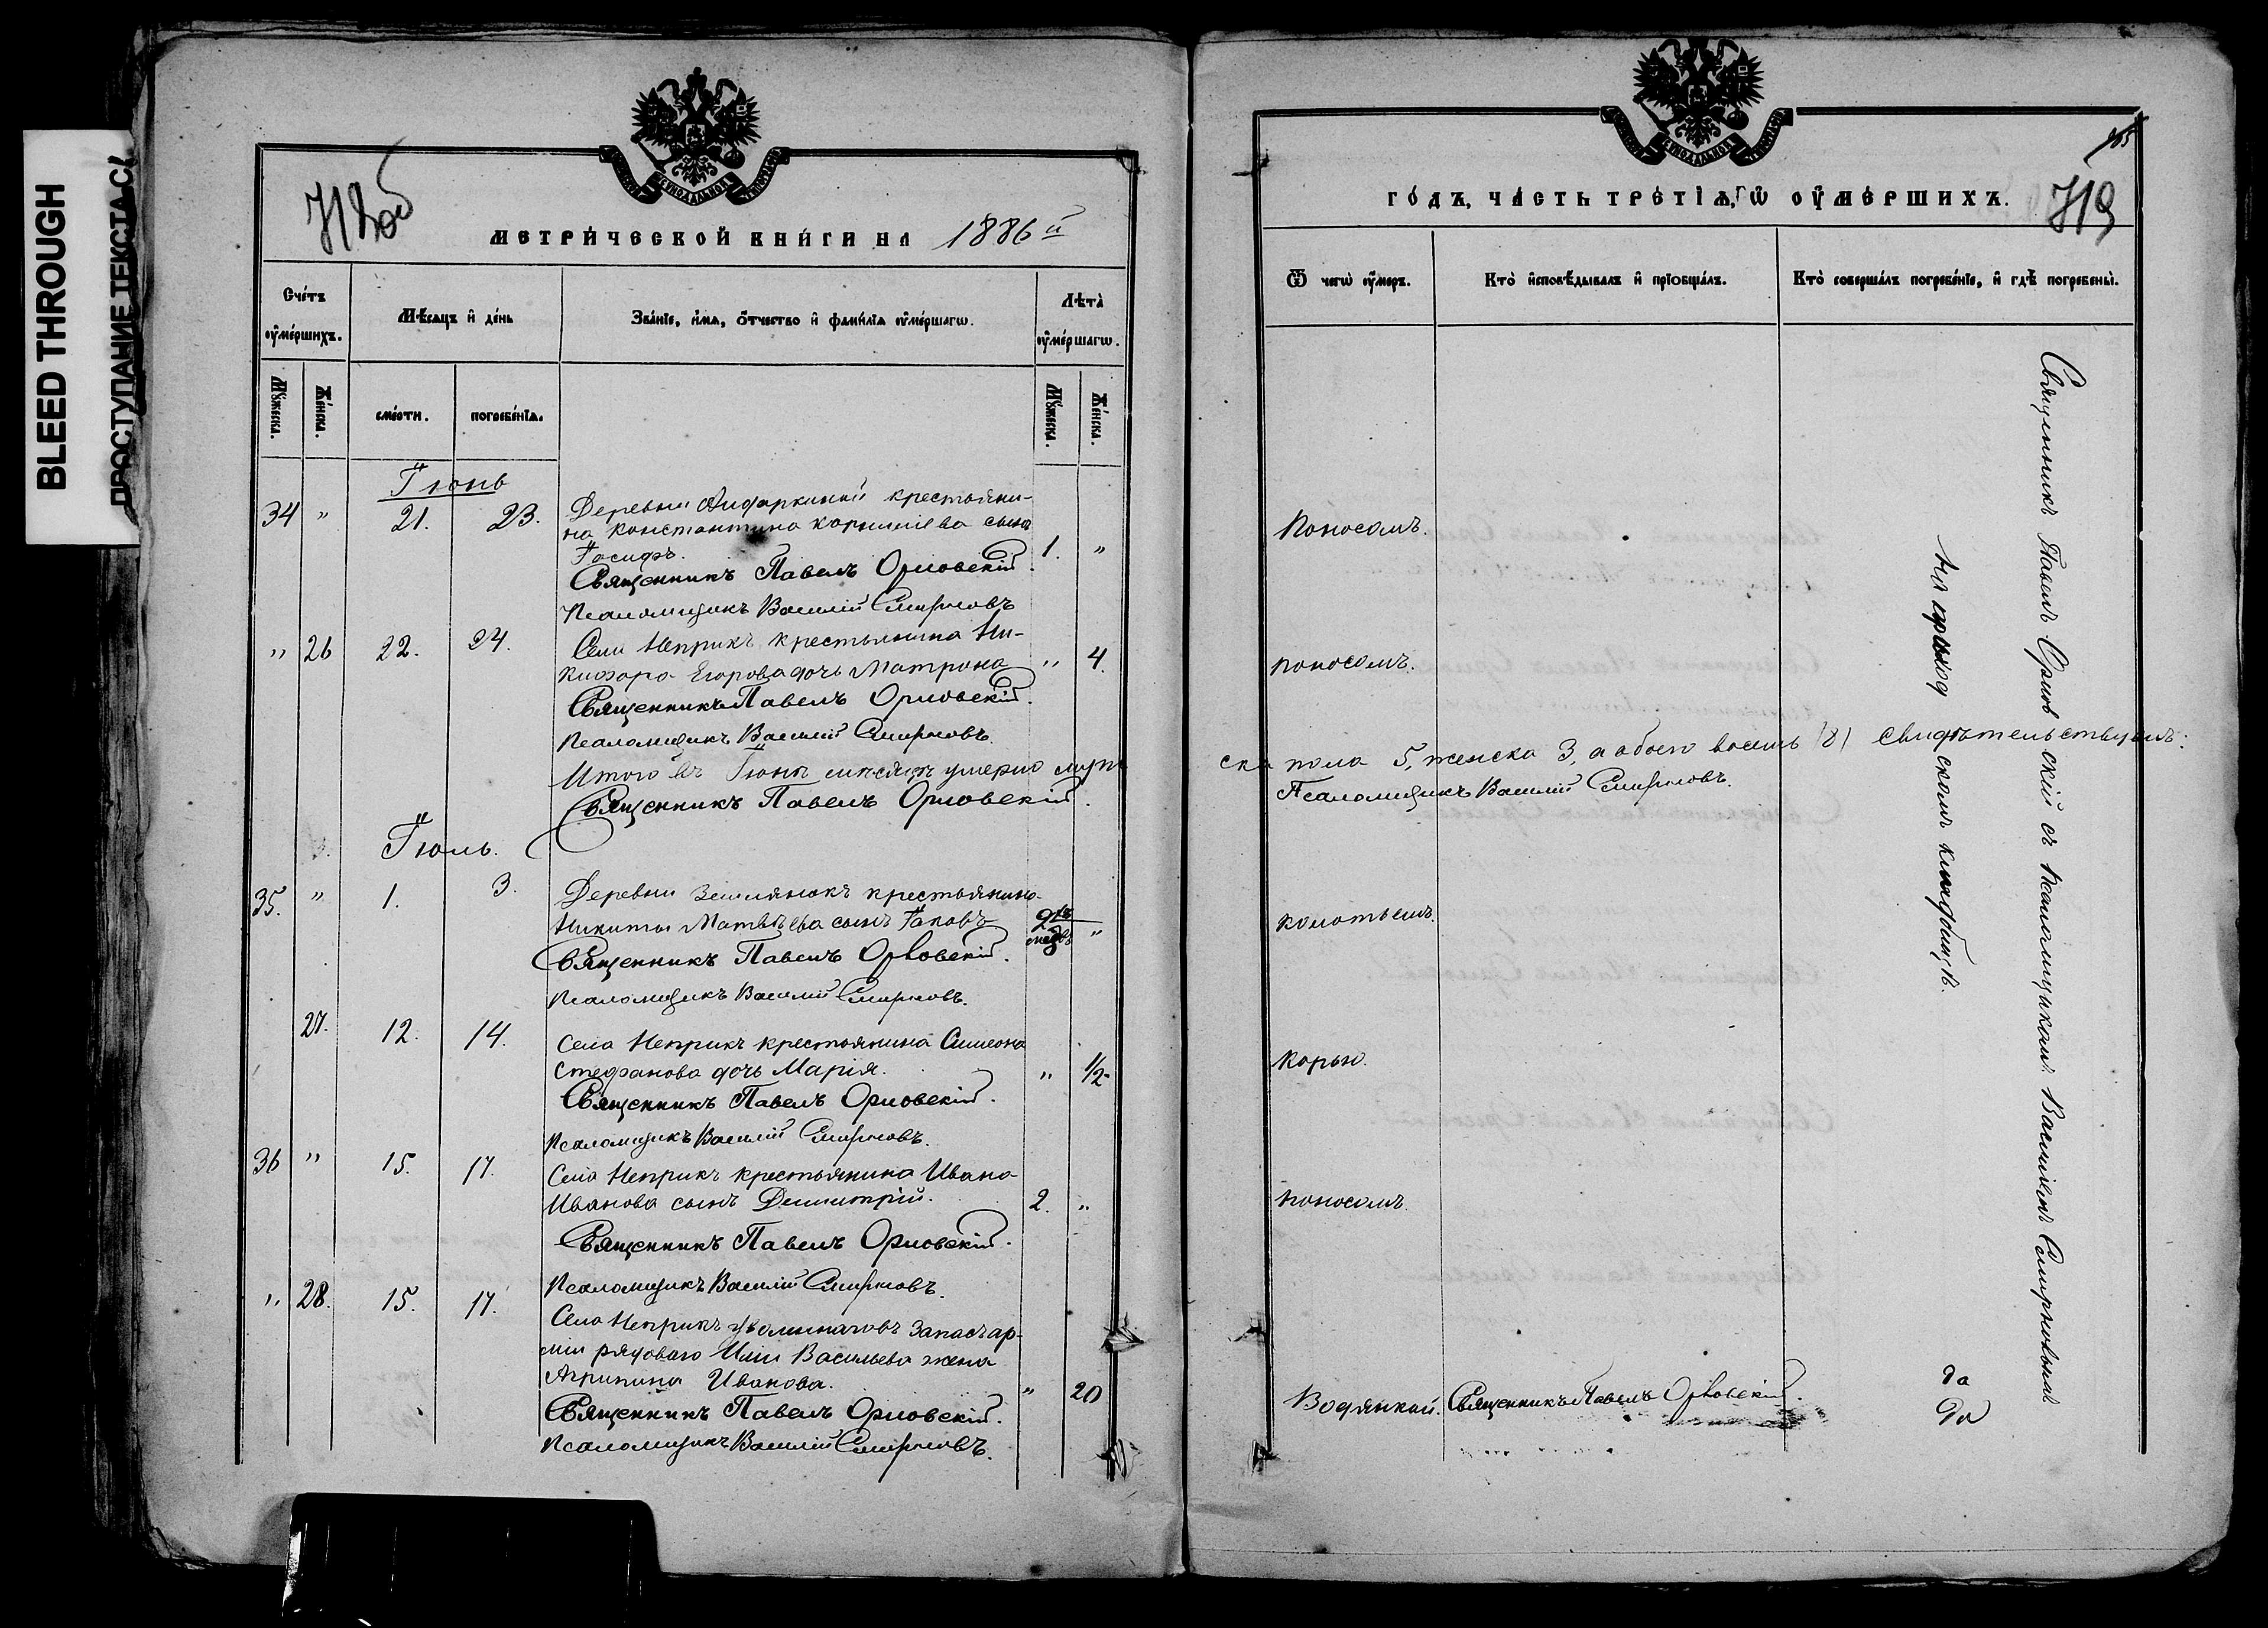 BLEED THROUGH
ПРОСТУПАНИЕ ТЕКСТА С
718об
МЕТРИЧЕСКОЙ КНИГИ НА 1886й
Счетъ умершихъ.
Мѣсяцъ и день
Званіе, имя, отчество и фамилія умершагѡ.
Лѣта умершагѡ.
Мужеска.
Женска.
смерти.
погребенія.
Мужеска.
Женска.
Іюнь
34 " 21. 23. Деревни крестьяни-
на Константина Корнилiева сынъ
Іосифъ. 1. "
Священникъ Павелъ Орловскій.
Псаломщикъ Василій Смирновъ
" 26 22. 24. Села Неприкъ крестьянина Ни-
кифора Егорова дочь Матрона " 4.
Священникъ Павелъ Орловскій.
Псаломщикъ Василій Смирновъ.
Итого въ Іюнѣ мѣсяцѣ умерло муже
Священникъ Павелъ Орловскій.
Іюль.
35. " 1. 3. Деревни Землянокъ крестьянина
Никиты Матвѣева сынъ Іаковъ "
Священникъ Павелъ Орловскій.
Псаломщикъ Василій Смирновъ.
27. 12. 14. Села Неприкъ крестьянина Симеона
Стефанова дочь Марія. " 1/2
Священникъ Павелъ Орловскій.
Псаломщикъ Василій Смирновъ.
36 " 15. 17. Села Неприкъ крестьянина Ивана
Иванова сынъ Димитрій. 2. "
Священникъ Павелъ Орловскій.
Псаломщикъ Василій Смирновъ.
" 28. 15. 17. Села Неприкъ запас. ар-
міи рядоваго Иліи Васильева жена
Агрипина Иванова. " 20
Священникъ Павелъ Орловскій.
Псаломщикъ Василій Смирновъ.
719
ГОДЪ, ЧАСТЬ ТРЕТІЯ, Ѡ УМЕРШИХЪ.
Ѿ чегѡ умеръ.
Кто исповѣдывалъ и пріобщалъ.
Кто совершалъ погребеніе, и гдѣ погребены.
Поносомъ.
поносомъ.
ска пола 5, женска 3, а обоего восемь (8) свидѣтельствуемъ:
Псаломщикъ Василій Смирновъ.
колотьемъ.
Корью.
поносомъ.
Водянкой. Священникъ Павелъ Орловскій.
Священникъ Павелъ Орловскій съ псаломщикомъ Василіемъ Смирновымъ
на приходскомъ кладбищѣ.
да
да